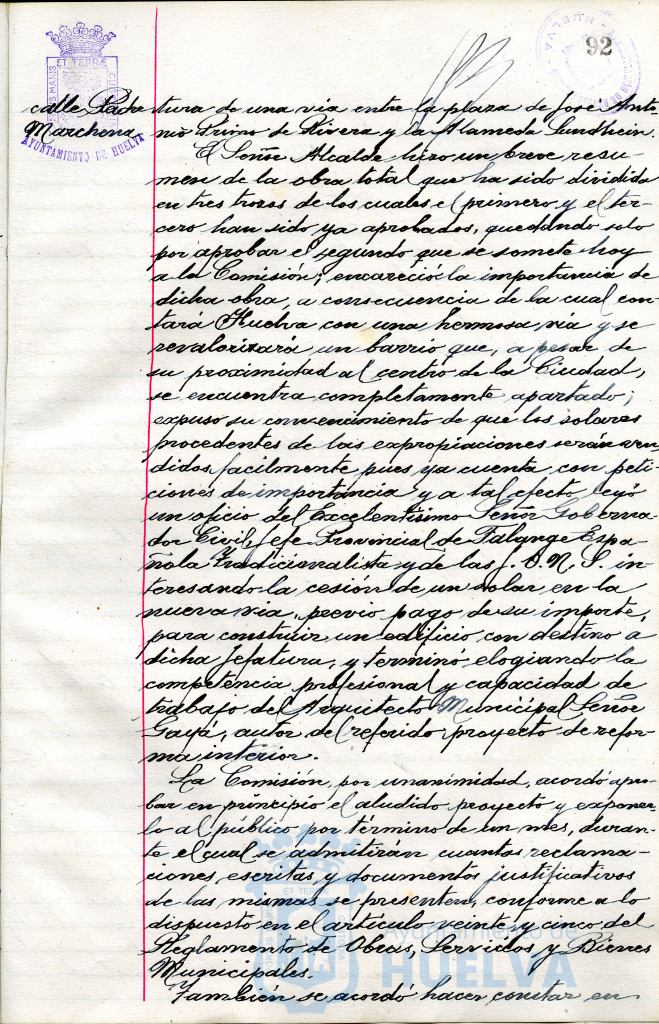 92
calle Padre
Marchena
AYUNTAMIENTO DE HUELVA
tura de una via entre la plaza de José Anto-
nio Primo de Rivera y la Alameda Sundheim.
El Señor Alcalde hizo un breve resu-
men de la obra total que ha sido dividida
en tres trozos de los cuales el primero y el ter-
cero han sido ya aprobados, quedando solo
por aprobar el segundo que se somete hoy
a la Comisión; encareció la importancia de
dicha obra, a consecuencia de la cual con-
tará Huelva con una hermosa via y se
revalorizará un barrio que, a pesar de
su proximidad al centro de la Ciudad,
se encuentra completamente apartado;
expuso su convencimiento de que los solares
procedentes de las expropiaciones serán ven-
didos facilmente pues ya cuenta con peti-
ciones de importancia y a tal efecto leyó
un oficio del Excelentisimo Señor Goberna-
dor Civil, Jefe Provincial de Falange Espa-
ñola Tradicionalista y de las J. O. N. S. in-
teresando la cesión de un solar en la
nueva via, previo pago de su importe,
para construir un edificio con destino a
dicha Jefatura, y terminó elogiando la
competencia profesional y capacidad de
trabajo del Arquitecto Municipal Señor
Gayá, autor del referido proyecto de refor-
ma interior.
La Comisión, por unanimidad, acordó apro-
bar en principio el aludido proyecto y exponer-
lo al público por término de un mes, duran-
te el cual se admitirán cuantas reclama-
ciones escritas y documentos justificativos
de las mismas se presenten, conforme a lo
dispuesto en el artículo veinte y cinco del
Reglamento de Obras, Servicios y Bienes
Municipales.
También se acordó hacer constar en
Ayuntamiento de
HUELVA